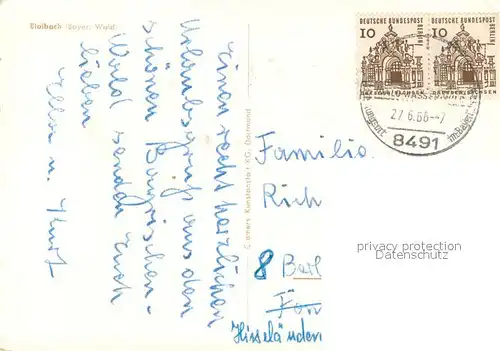 Blaibach (Bayer. Wald)
Einen recht herzlichen
Urlaubsgruß aus dem
schönen Bayrischen-
Wald senden Euch
lieben
Ellen u. Kurt
Cramers Kunstanstalt KG, Dortmund
DEUTSCHE BUNDESPOST BERLIN
10
DEUTSCHE BUNDESPOST BERLIN
10
27.6.66-7
im Bayer.
8491
Familie
Rich
8 Berl
Hisseländen
privacy protection
watermark ansichtskarten-lexikon.de